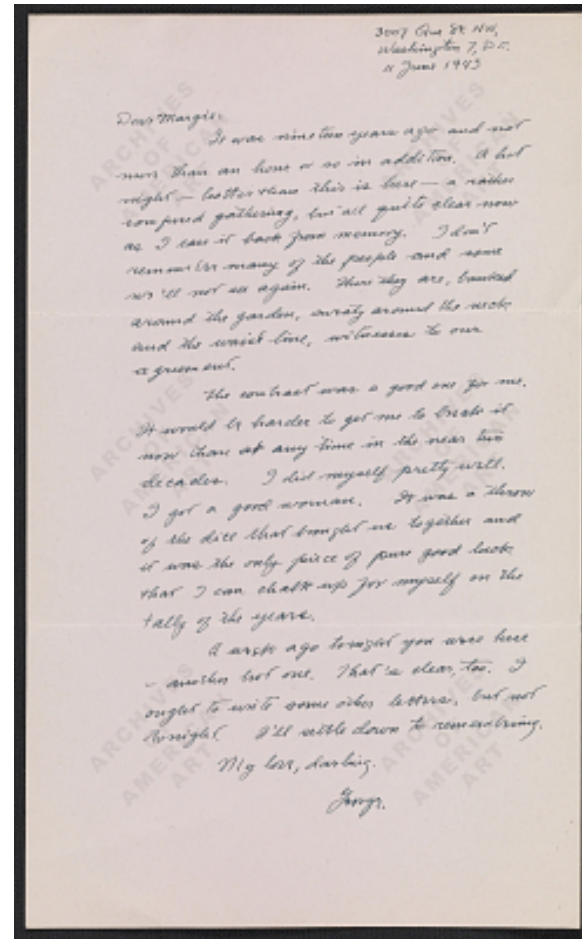 3007 Que St. NW,
Washington 7, D.C.
11 June 1943
Dear Margie:
It was nineteen years ago and not
more than an hour or so in addition. A hot
night — hotter than this is here — a rather
confused gathering, but all quite clear now
as I can it back from memory. I don't
remember many of the people and some
we'll not see again. There they are, banked
around the garden, sweaty around the neck
and the waist-line, witnesses to our
agreement.
The contract was a good one for me.
It would be harder to get me to break it
now than at any time in the near two
decades. I did myself pretty well.
I got a good woman. It was a throw
of the dice that brought us together and
it was the only piece of pure good luck
that I can chalk up for myself on the
tally of the years.
A week ago tonight you were here
— another hot one. That's clear, too. I
ought to write some other letters, but not
tonight. I'll settle down to remembering.
My love, darling.
George.
ARCHIVES
OF
AMERICAN
ART
ARCHIVES
OF
AMERICAN
ART
ARCHIVES
OF
AMERICAN
ART
ARCHIVES
OF
AMERICAN
ART
ARCHIVES
OF
AMERICAN
ART
ARCHIVES
OF
AMERICAN
ART